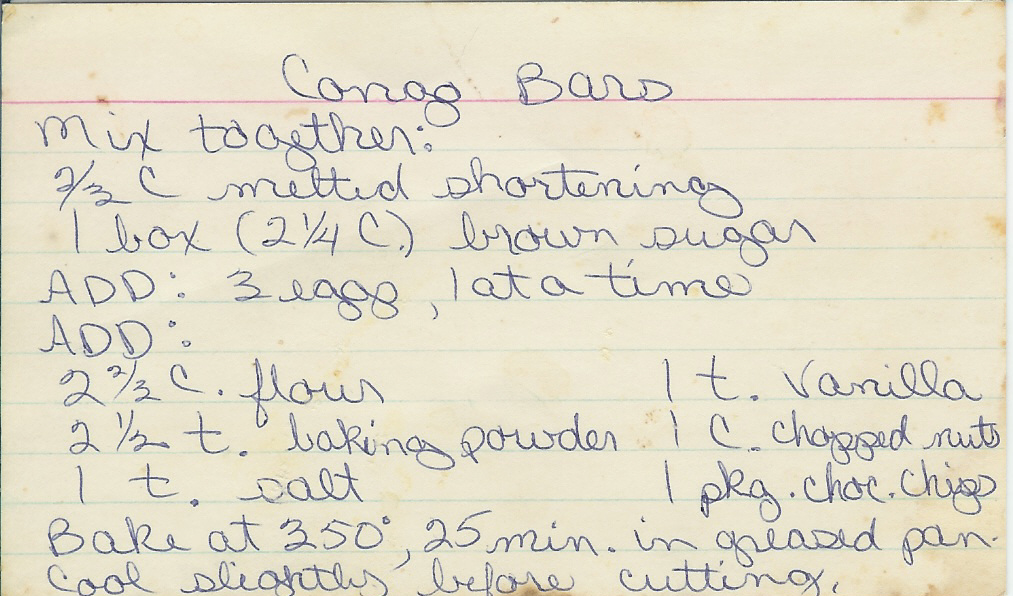 Congo Bars
Mix together:
2/3 C melted shortening
1 box (2 1/4 C.) brown sugar
ADD: 3 eggs, 1 at a time
ADD:
2 2/3 C. flour 1 t. Vanilla
2 1/2 t. baking powder 1 C. chopped nuts
1 t. salt 1 pkg. choc. chips
Bake at 350°, 25 min. in greased pan.
Cool slightly before cutting.